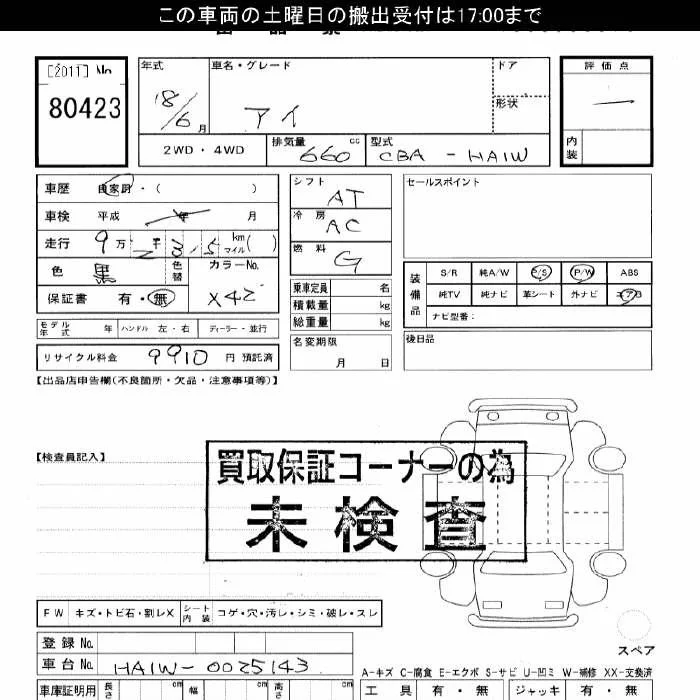 この車両の土曜日の搬出受付は17:00まで
[2011] No
80423
年式
18/6月
車名・グレード
アイ
ドア
形状
評価点
一
内装
2WD・4WD
排気量
660 cc
型式
CBA-HA1W
車歴 自家用・( )
車検 平成 年 月
走行 9万 2千 3.5 km マイル ( )
色 黒
色替
カラーNo.
X42
保証書 有・無
モデル年式 年
ハンドル 左・右
ディーラー・並行
リサイクル料金 9910 円 預託済
シフト AT
冷房 AC
燃料 G
乗車定員 名
積載量 kg
総重量 kg
名変期限
月 日
セールスポイント
装備品
S/R 純A/W P/S P/W ABS
純TV 純ナビ 革シート 外ナビ エアB
ナビ型番:
後日品
【出品店申告欄(不良箇所・欠品・注意事項等)】
【検査員記入】
買取保証コーナーの為
未検査
FW キズ・トビ石・割レX
シート内装 コゲ・穴・汚レ・シミ・破レ・スレ
登録No.
車台No. HA1W-0025143
車庫証明用 長さ cm 幅 cm 高さ cm
スペア
A-キズ C-腐食 E-エクボ S-サビ U-凹ミ W-補修 XX-交換済
工具 有・無 ジャッキ 有・無